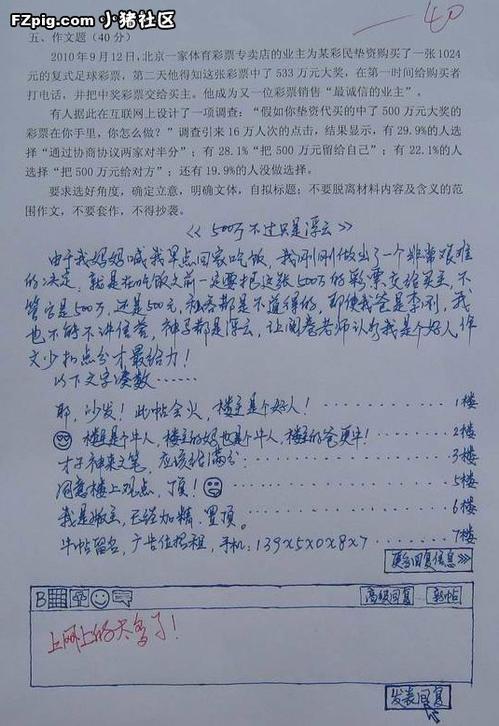 FZpig.com 小猪社区
-40
五、作文题（40 分）
2010 年 9 月 12 日，北京一家体育彩票专卖店的业主为某彩民垫资购买了一张 1024
元的复式足球彩票，第二天他得知这张彩票中了 533 万元大奖，在第一时间给购买者
打电话，并把中奖彩票交给买主。他成为又一位彩票销售“最诚信的业主”。
有人据此在互联网上设计了一项调查：“假如你垫资代买的中了 500 万元大奖的
彩票在你手里，你怎么做？”调查引来 16 万人次的点击，结果显示，有 29.9%的人选
择“通过协商协议两家对半分”；有 28.1%“把 500 万元留给自己”；有 22.1%的人
选择“把 500 万元给对方”；还有 19.9%的人没做选择。
要求选好角度，确定立意，明确文体，自拟标题；不要脱离材料内容及含义的范
围作文，不要套作，不得抄袭。
《500万不过只是浮云》
由于我妈妈喊我早点回家吃饭，我刚刚做出了一个非常艰难
的决定，就是在吃饭之前一定要把这张500万的彩票交给买主，不
管它是500万，还是500元，私吞都是不道德的，即使我爸是李刚，我
也不能不讲信誉，神马都是浮云，让阅卷老师认为我是个好人，作
文少扣点分才最给力！
以下文字凑数……
耶，沙发！此帖会火，楼主是个好人！……1楼
楼主是个牛人，楼主的妈也是个牛人，楼主的爸更牛！……2楼
才子神来之笔，应该给满分……3楼
同意楼上观点，顶！……5楼
我是版主，已经加精、置顶。……6楼
牛帖留名，广告位招租，手机：139x5x0x8x7……7楼
更多回复信息>>>
B
高级回复 新帖
上网上的太多了！
发表回复